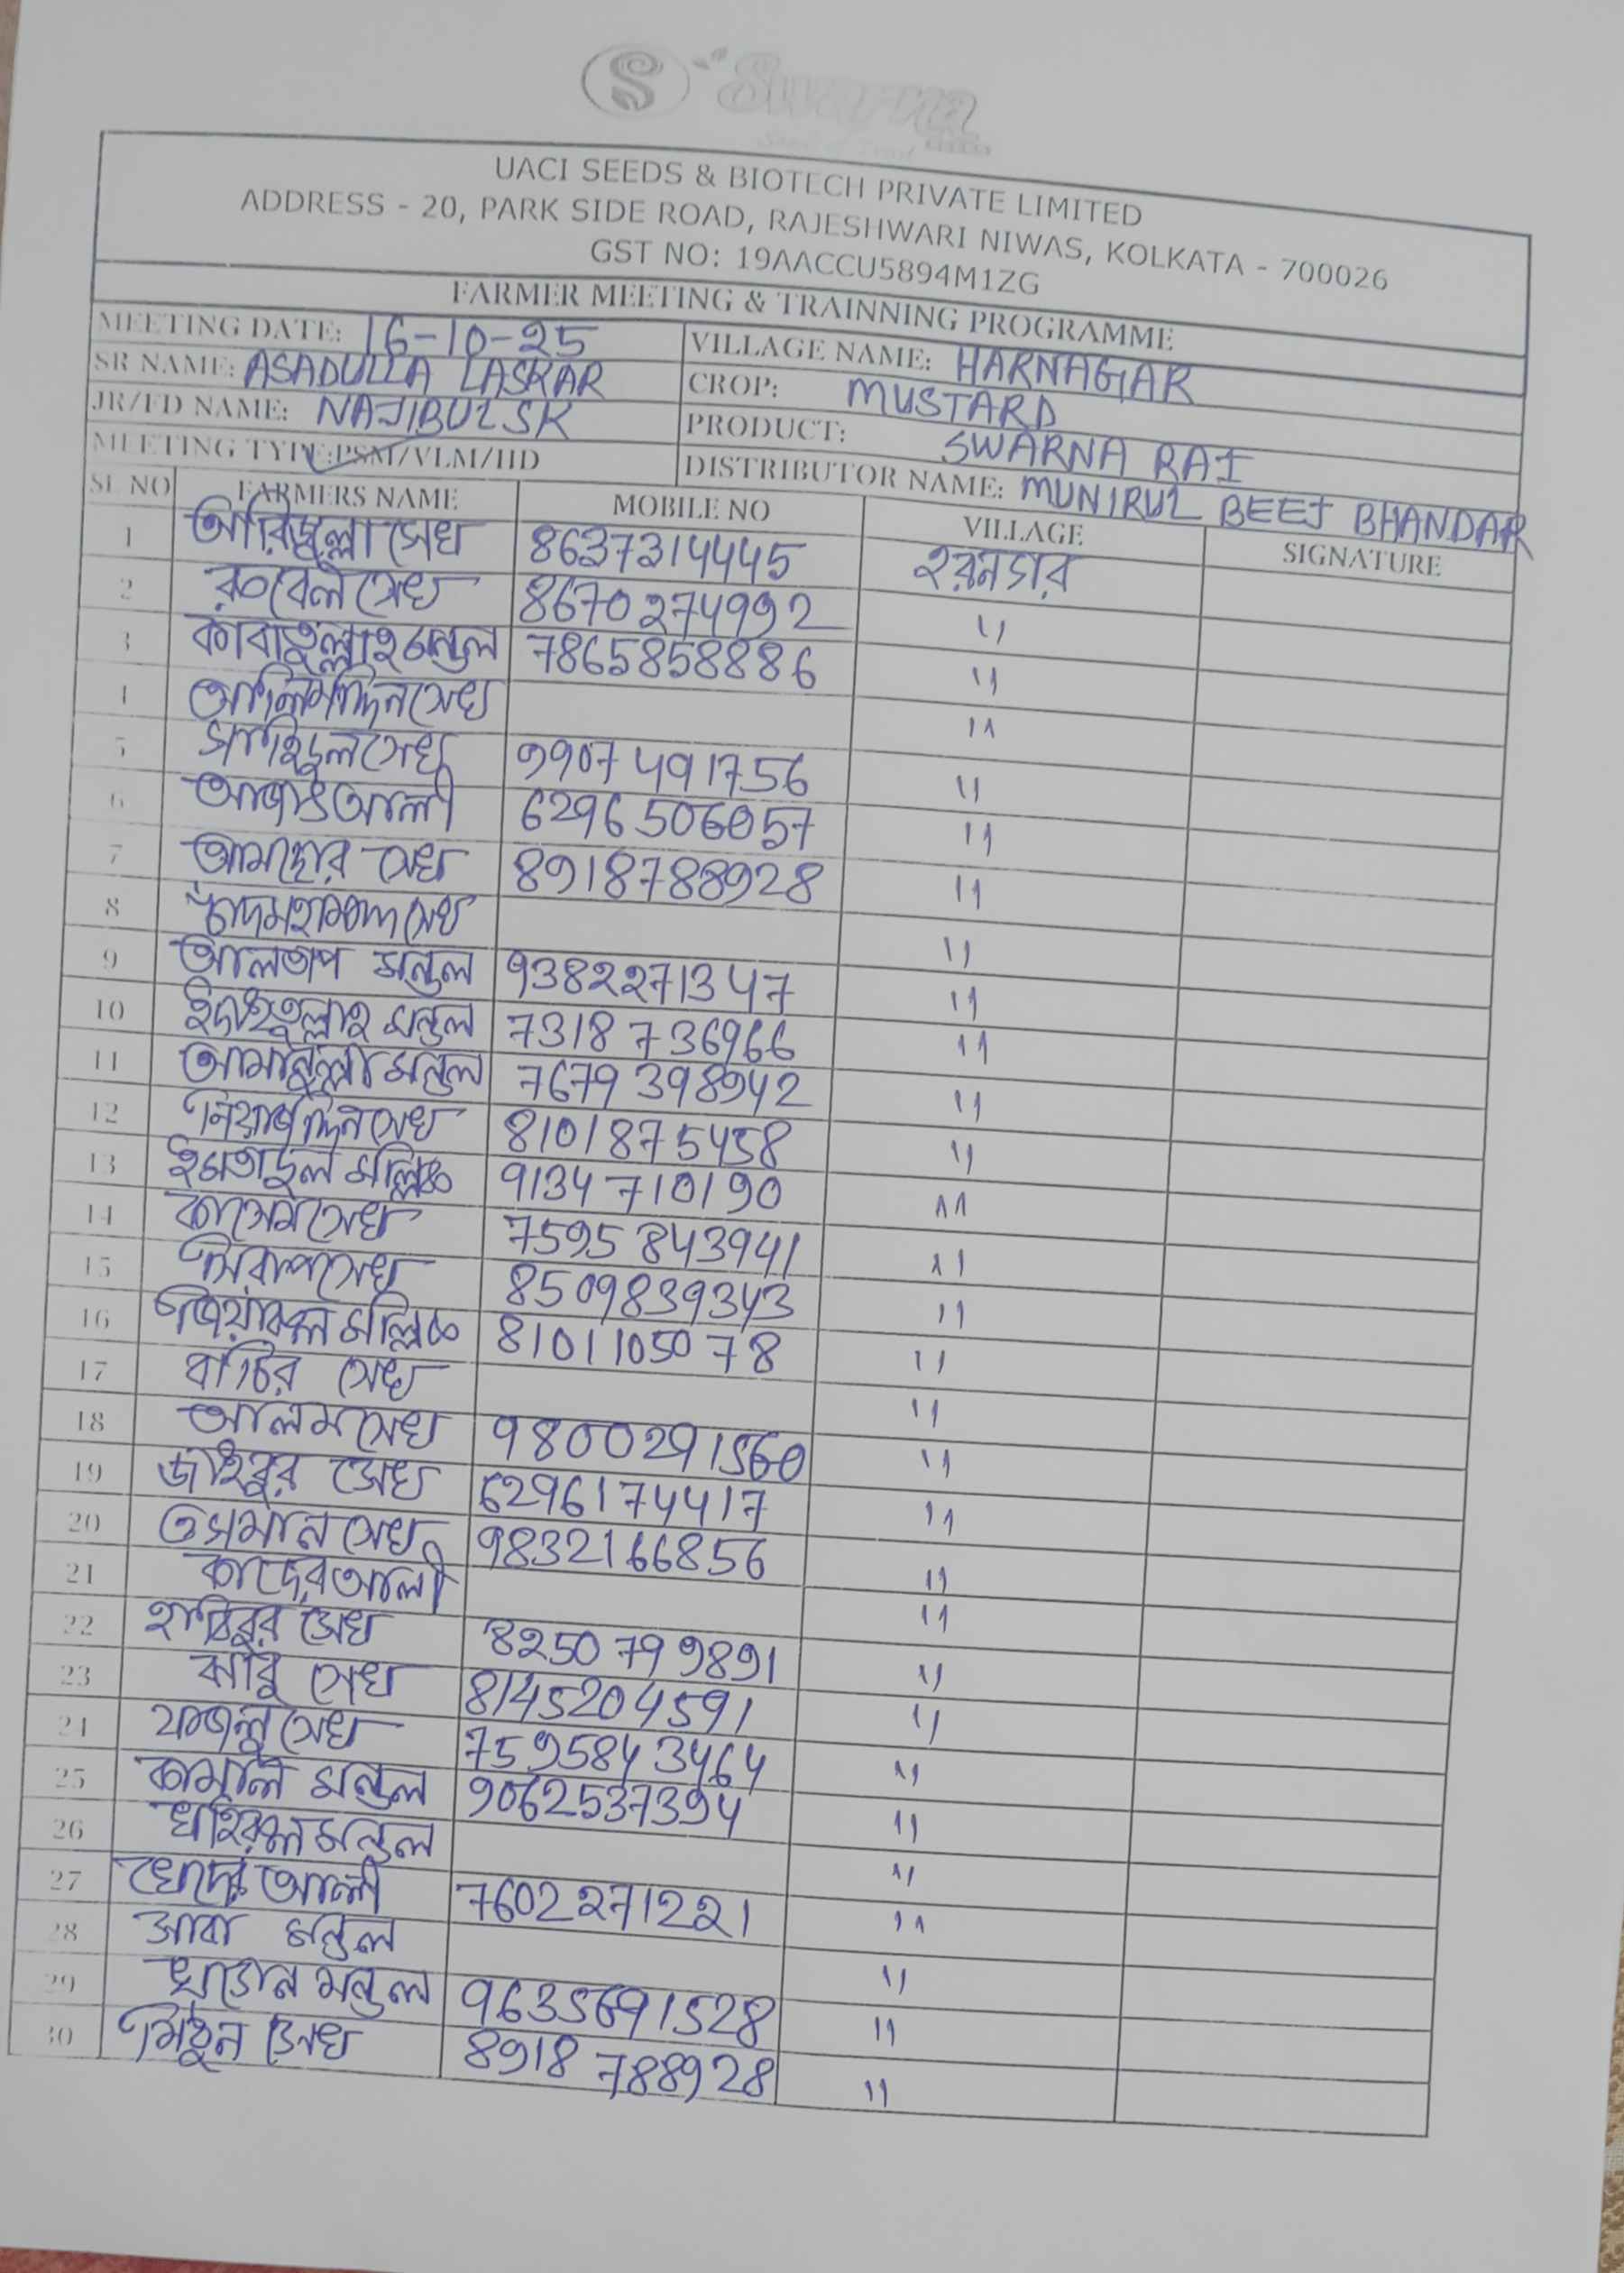 S Swarna
UACI SEEDS & BIOTECH PRIVATE LIMITED
ADDRESS - 20, PARK SIDE ROAD, RAJESHWARI NIWAS, KOLKATA - 700026
GST NO: 19AACCU5894M1ZG
FARMER MEETING & TRAINNING PROGRAMME
MEETING DATE: 16-10-25 VILLAGE NAME: HARNAGAR
SR NAME: ASADULLA LASKAR CROP: MUSTARD
JR/FD NAME: NAJIBUL SK PRODUCT: SWARNA RAI
MEETING TYPE:PSM/VLM/HD DISTRIBUTOR NAME: MUNIRUL BEEJ BHANDAR
SL NO FARMERS NAME MOBILE NO VILLAGE SIGNATURE
1 সেখ 8637314445 হরনগর
2 রুবেল সেখ 8670274992 "
3 মন্ডল 7865858886 "
4 সেখ "
5 সেখ 9907491756 "
6 আলী 6296506057 "
7 সেখ 8918788928 "
8 চাঁদমহাম্মদ সেখ "
9 আলতাপ মন্ডল 9382271347 "
10 মন্ডল 7318736966 "
11 আমানুল্লা মন্ডল 7679398942 "
12 সেখ 8101875458 "
13 মল্লিক 9134710190 "
14 কাসেম সেখ 7595843941 "
15 সেখ 8509839343 "
16 মল্লিক 8101105078 "
17 সেখ "
18 আলম সেখ 9800291560 "
19 সেখ 6296174417 "
20 ওসমান সেখ 9832166856 "
21 কাদের আলী "
22 সেখ 8250799891 "
23 সেখ 8145204591 "
24 সেখ 7595843464 "
25 কামাল মন্ডল 9062537394 "
26 মন্ডল "
27 আলী 7602271221 "
28 মন্ডল "
29 মন্ডল 9635691528 "
30 মিঠুন সেখ 8918788928 "